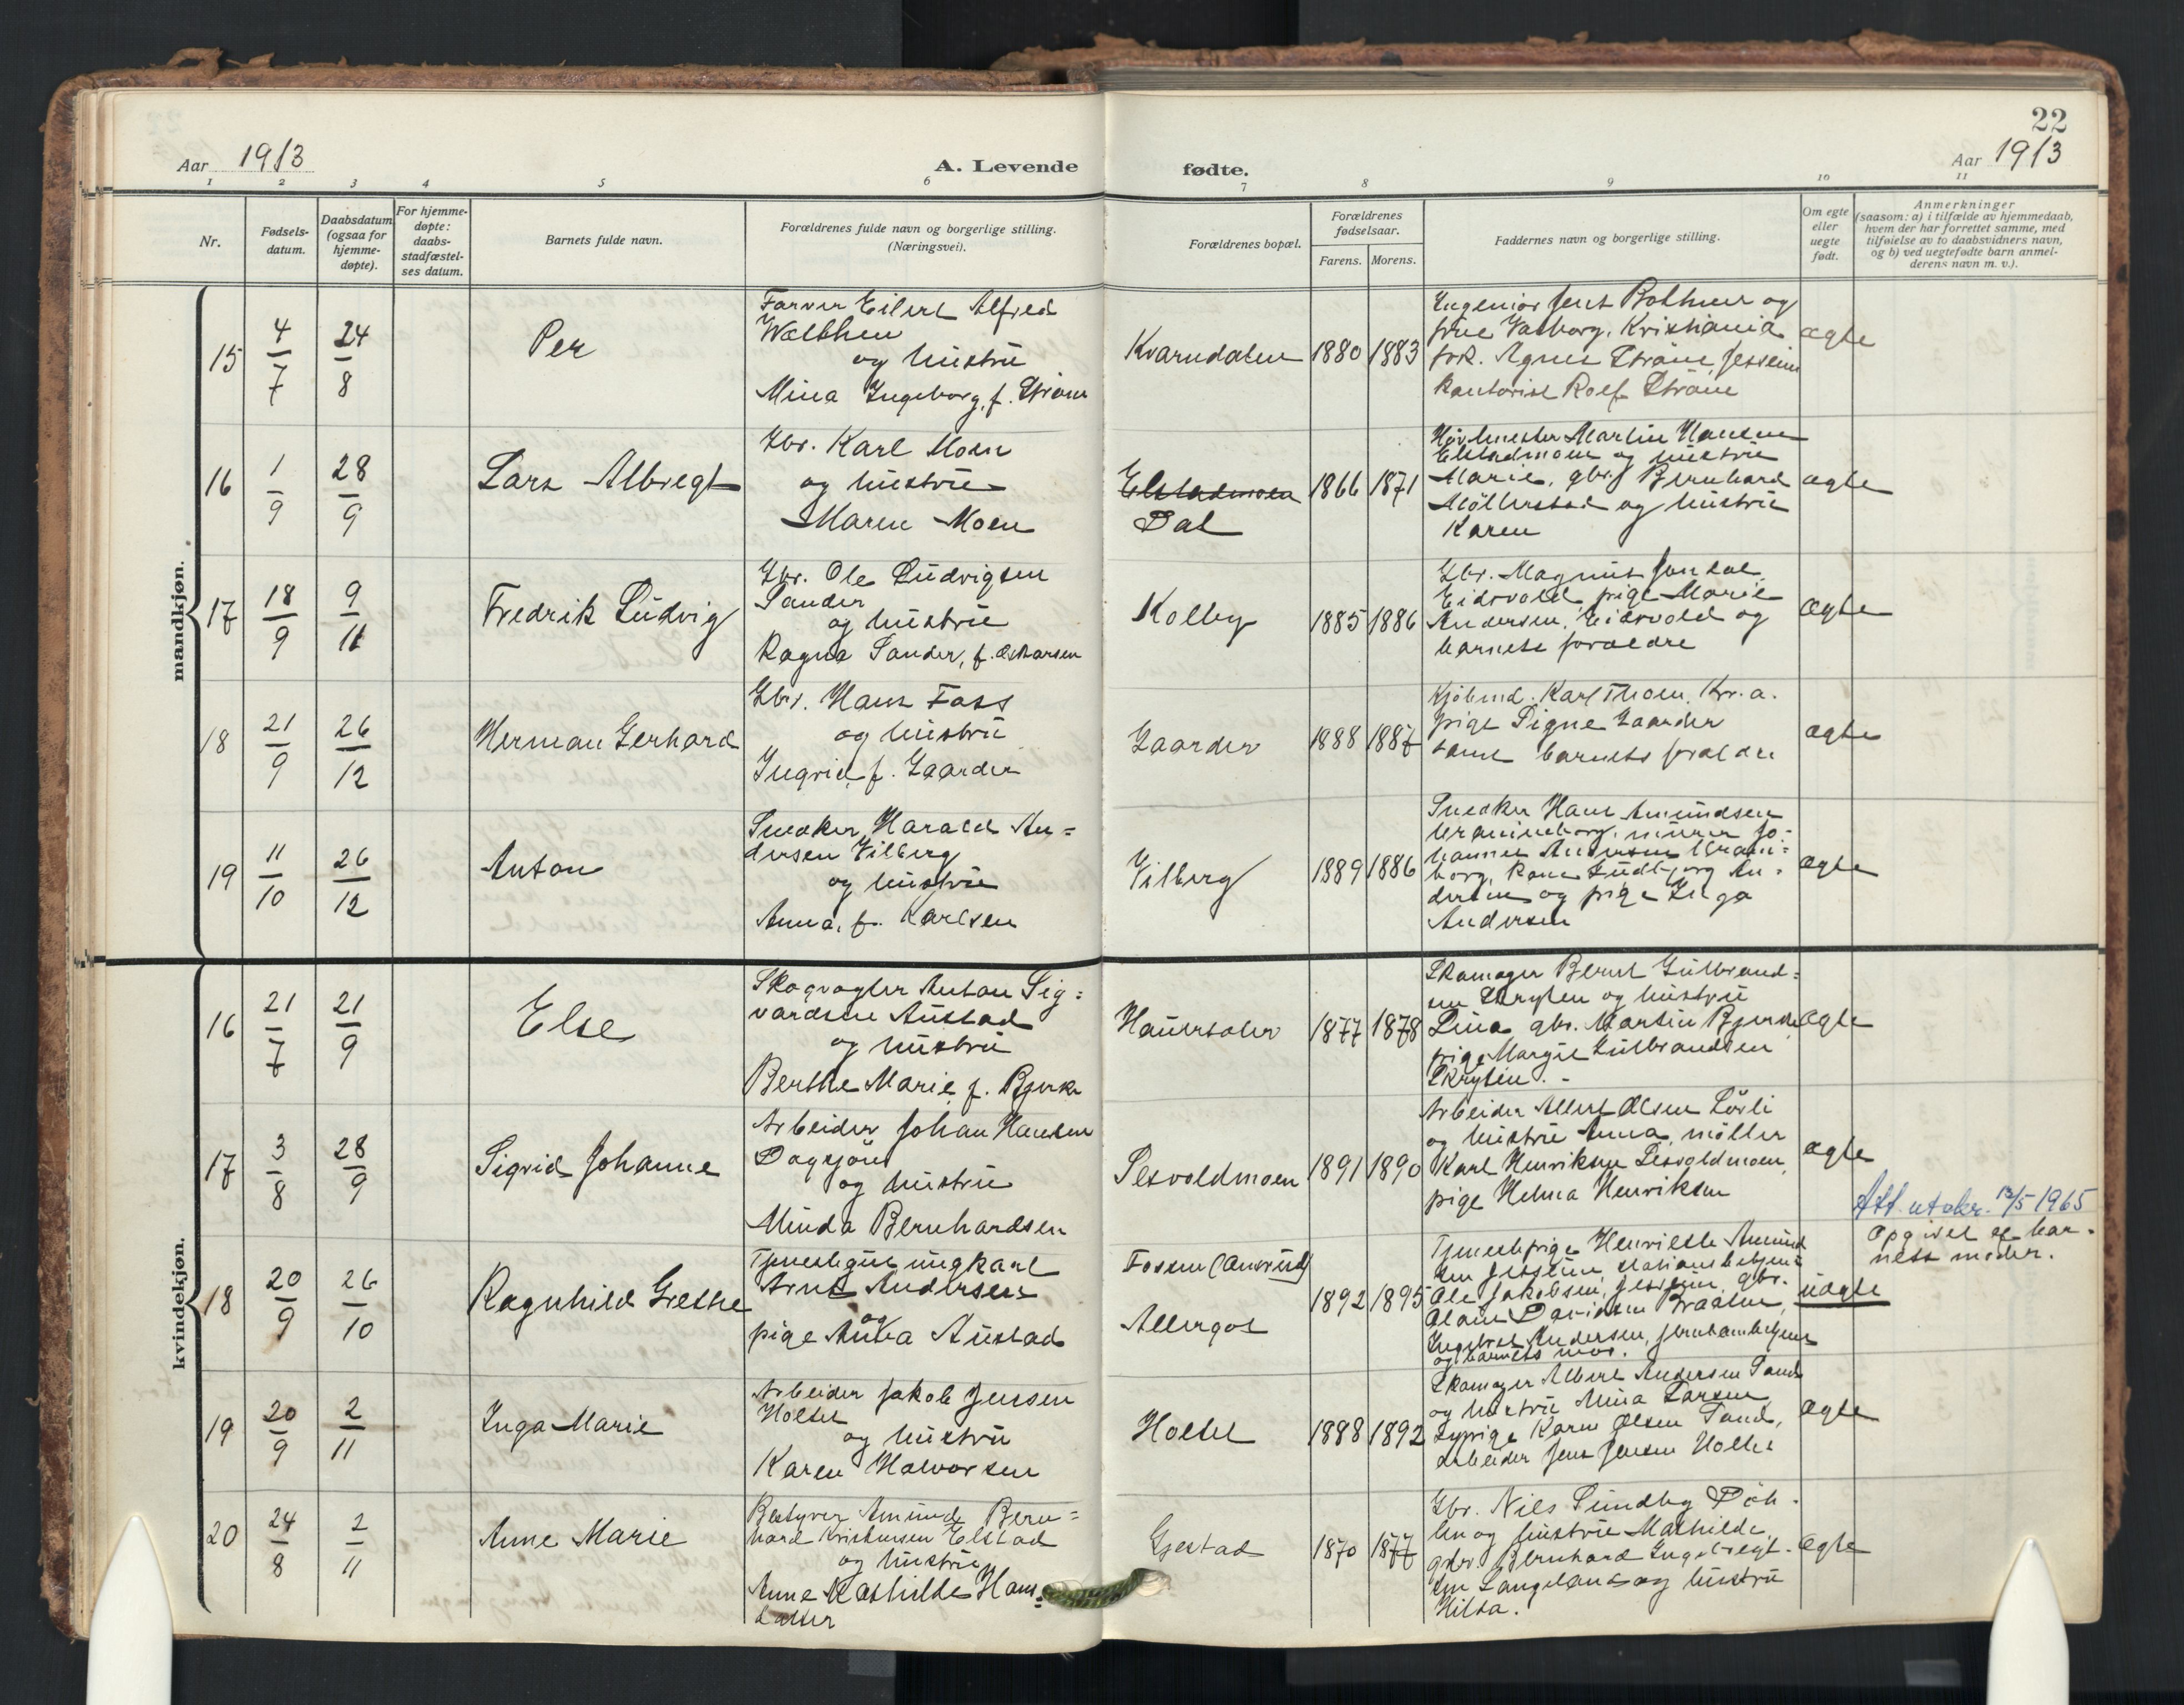 22
Aar 1913
A. Levende
fødte.
Aar 1913
1 2 3 4 5 6 7 8 9 10 11
Nr.
Fødsels-
datum.
Daabsdatum
(ogsaa for
hjemme-
døpte).
For hjemme-
døpte:
daabs-
stadfæstel-
ses datum.
Barnets fulde navn.
Forældrenes fulde navn og borgerlige stilling.
(Næringsvei).
Forældrenes bopæl.
Forældrenes
fødselsaar.
Farens. Morens.
Faddernes navn og borgerlige stilling.
Om egte
eller
uegte
født.
Anmerkninger
(saasom: a) i tilfælde av hjemmedaab,
hvem der har forrettet samme, med
tilføielse av to daabsvidners navn,
og b) ved uegtefødte barn anmel-
derens navn m. v.).
mandkjøn.
15
4/7
24/8
Per
Farver Eilert Alfred
og hustru
Mina Ingeborg, f. Strøm
Kvarndalen
1880 1883
Ingeniør Jens Bothner og
frue Valborg, Kristiania
frk. Agnes Strøm, Jessheim
kontorist Rolf Strøm
ægte
16
1/9
28/9
Lars Albregt
Gbr. Karl Moen
og hustru
Maren Moen
Elstadmoen
Dal
1866 1871
Martin Hansen
Elstadmoen og hustru
Marie, gbr. Bernhard
Møllerstad og hustru
Karen
ægte
17
18/9
9/11
Fredrik Ludvig
Gbr. Ole Ludvigsen
Sander
og hustru
Ragna Sander, f. Oskarsen
Kolby
1885 1886
Gbr. Magnus
Eidsvold, pige Marie
Andersen, Eidsvold og
barnets forældre
ægte
18
21/9
26/12
Herman Gerhard
Gbr. Hans Foss
og hustru
Ingrid, f. Gaarder
Gaarder
1888 1887
Kjøbmd. Karl Thoen, Kr.a.
pige Signe Gaarder
samt barnets forældre
ægte
19
11/10
26/12
Anton
Snedker Harald An=
dersen Vilberg
og hustru
Anna, f. Karlsen
Vilberg
1889 1886
Snedker Hans Amundsen
murer Jo-
hannes Andersen
borg, An-
dersen og pige Inga
Andersen
ægte
kvindekjøn.
16
21/7
21/9
Else
Skogvogter Anton Sig=
vardsen Austad
og hustru
Berthe Marie, f. Bjerke
Hauersæter
1877 1878
Skomager Bernt Gulbrand=
sen Skryten og hustru
Lina, gbr. Martin Bjerke,
pige Margit Gulbrandsen
Skryten.
ægte
17
3/8
28/9
Sigrid Johanne
Arbeider Johan Hansen
Dagsjøns
og hustru
Minda Bernhardsen
Sesvoldmoen
1891 1890
Arbeider Albert Olsen Løvli
og hustru Anna, møller
Karl Henriksen Sesvoldmoen,
pige Helma Henriksen
ægte
18
20/9
26/10
Ragnhild Grethe
Tjenestegut ungkarl
Arnt Andersen
og
pige Anna Austad
Fossen (Aurrud)
Allergot
1892 1895
Tjenestepige Henriette Amund
sen Jessheim, stationsbetjent
Ole Jakobsen, Jessheim, gbr.
Olaus Davidsen Braaten,
Ingebret Andersen, jernbanebetjent
og barnets mor.
uægte
Att. utskr. 13/5 1965
Opgivet af bar-
nets moder.
19
20/9
2/11
Inga Marie
Arbeider Jakob Jensen
Holtet
og hustru
Karen Halvorsen
Holtet
1888 1892
Skomager Albert Andersen Sand
og hustru Mina Larsen,
sypige Karen Olsen Sand,
arbeider Jens Jensen Holtet
ægte
20
24/8
2/11
Anne Marie
Bestyrer Amund Bern=
hard Kristensen Elstad
og hustru
Anne Mathilde Hans=
datter
Gjestad
1870 1877
Gbr. Nils Sundby Døh-
len og hustru Mathilde,
gbr. Bernhard Ingebregt-
sen Langeland og hustru
Hilda.
ægte